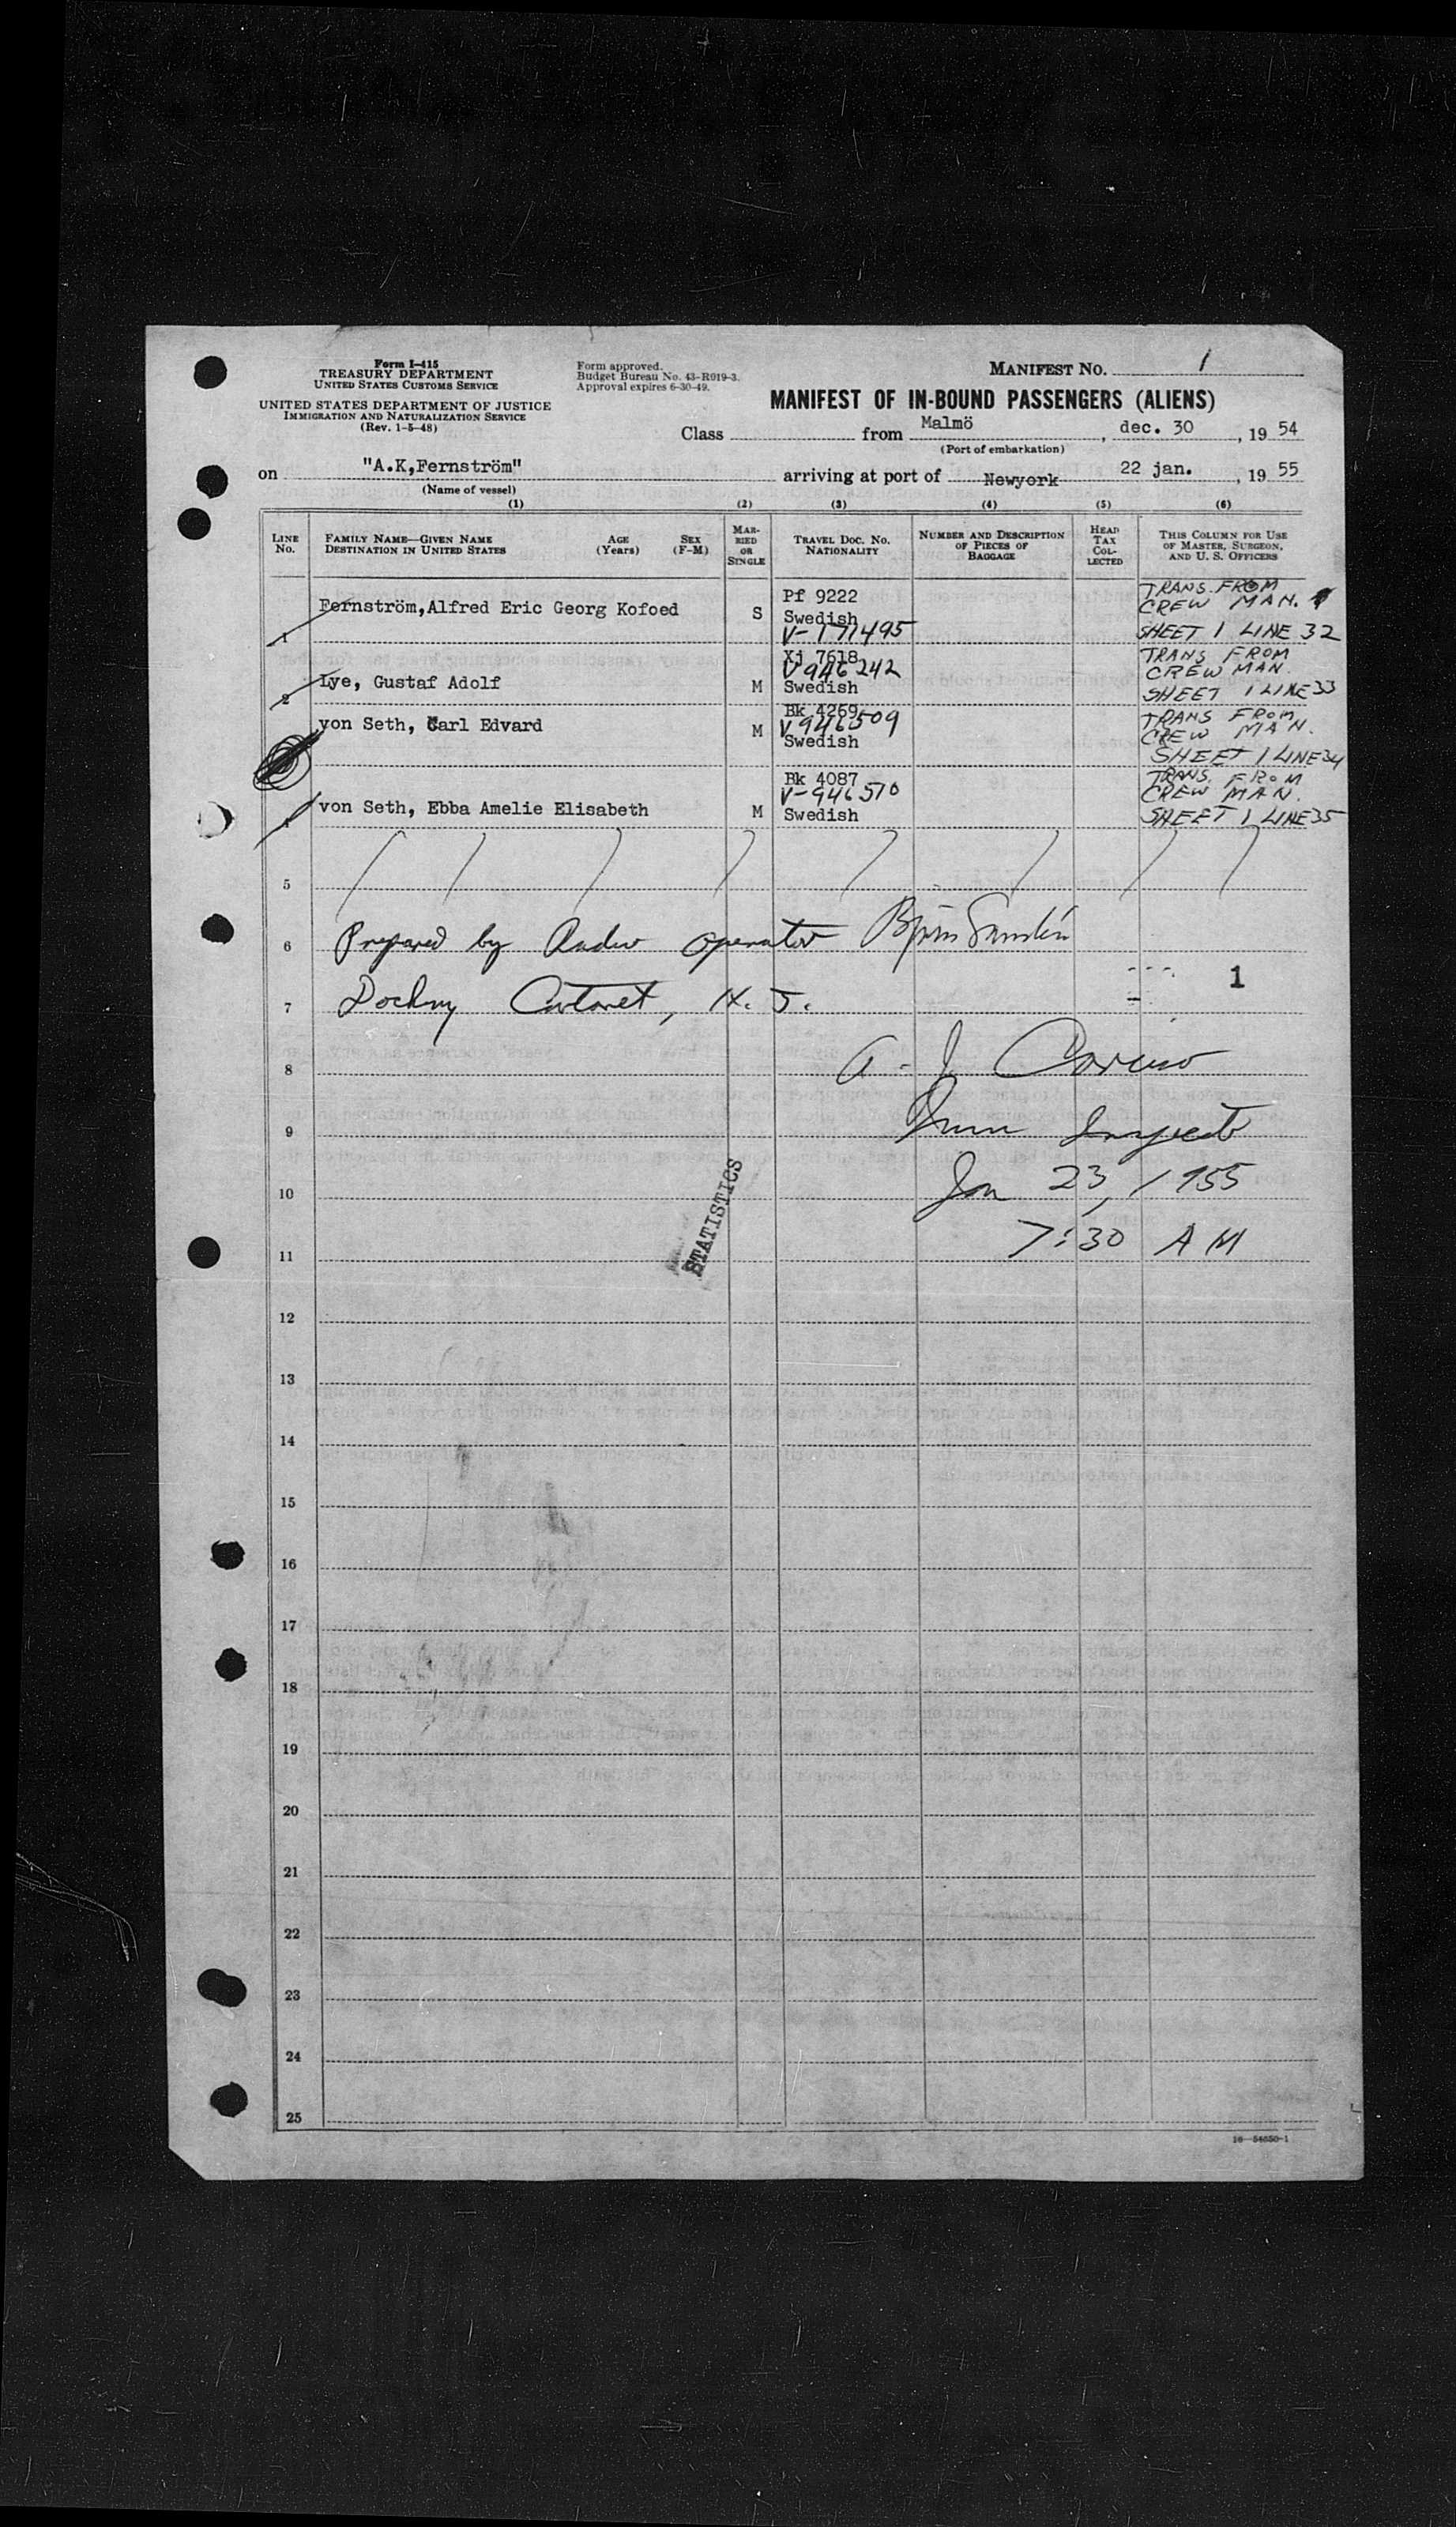 Form I-415
TREASURY DEPARTMENT
UNITED STATES CUSTOMS SERVICE
UNITED STATES DEPARTMENT OF JUSTICE
IMMIGRATION AND NATURALIZATION SERVICE
(Rev. 1-5-48)
Form approved.
Budget Bureau No. 43-R019-3.
Approval expires 6-30-49.
MANIFEST NO. 1
MANIFEST OF IN-BOUND PASSENGERS (ALIENS)
Class from Malmö, dec. 30, 19 54
(Port of embarkation)
on "A.K,Fernström" arriving at port of Newyork 22 jan., 19 55
(Name of vessel)
(1) (2) (3) (4) (5) (6)
LINE No.
FAMILY NAME—GIVEN NAME
DESTINATION IN UNITED STATES
AGE (Years)
SEX (F-M)
MARRIED OR SINGLE
TRAVEL DOC. NO.
NATIONALITY
NUMBER AND DESCRIPTION OF PIECES OF BAGGAGE
HEAD TAX COLLECTED
THIS COLUMN FOR USE OF MASTER, SURGEON, AND U. S. OFFICERS
1 Fernström,Alfred Eric Georg Kofoed S Pf 9222
Swedish
V-171495
TRANS. FROM
CREW MAN.
SHEET 1 LINE 32
2 Lye, Gustaf Adolf M Xj 7618
V946242
Swedish
TRANS FROM
CREW MAN.
SHEET 1 LINE 33
von Seth, Carl Edvard M Bk 4269
V946509
Swedish
TRANS FROM
CREW MAN.
SHEET 1 LINE 34
4 von Seth, Ebba Amelie Elisabeth M Bk 4087
V-946510
Swedish
TRANS. FROM
CREW MAN.
SHEET 1 LINE 35
5
6 Prepared by Radio operator
7 Docking Carteret, N. J.
1
8 A. J. Caruso
9 Imm Inspect
10 Jan 23, 1955
11 7:30 AM
STATISTICS
12
13
14
15
16
17
18
19
20
21
22
23
24
25